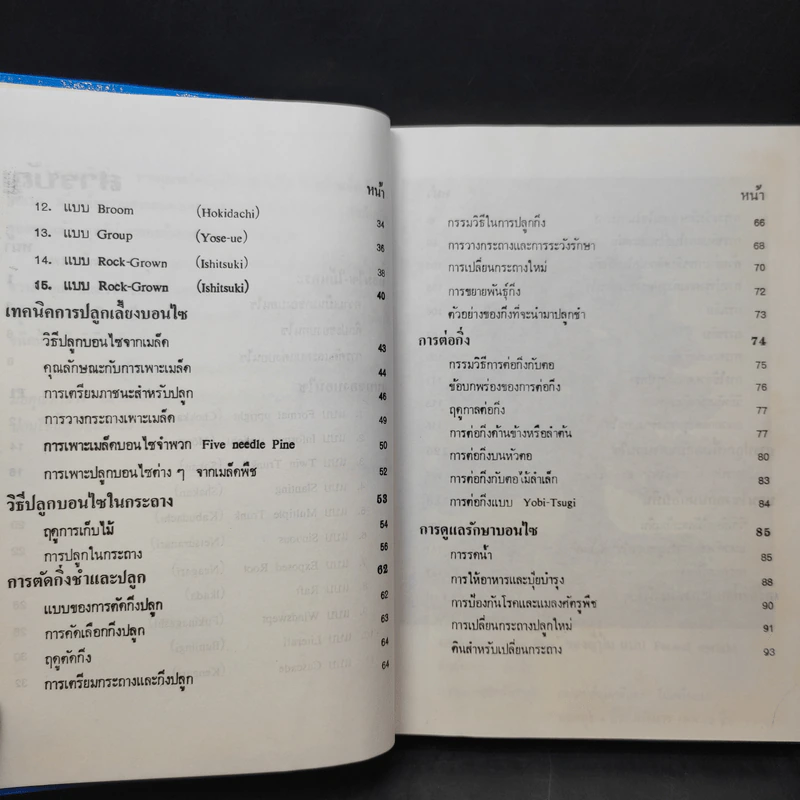 หน้า
12. แบบ Broom (Hokidachi) 34
13. แบบ Group (Yose-ue) 36
14. แบบ Rock-Grown (Ishitsuki) 38
15. แบบ Rock-Grown (Ishitsuki) 40
เทคนิคการปลูกเลี้ยงบอนไซ
วิธีปลูกบอนไซจากเมล็ด 43
คุณลักษณะกับการเพาะเมล็ด 44
การเตรียมภาชนะสำหรับปลูก 46
การวางกระถางเพาะเมล็ด 49
การเพาะเมล็ดบอนไซจำพวก Five needle Pine 50
การเพาะปลูกบอนไซต่าง ๆ จากเมล็ดพืช 52
วิธีปลูกบอนไซในกระถาง 53
ฤดูการเก็บไม้ 54
การปลูกในกระถาง 56
การตัดกิ่งชำและปลูก 62
แบบของการตัดกิ่งปลูก 62
การคัดเลือกกิ่งปลูก 63
ฤดูตัดกิ่ง 64
การเตรียมกระถางและกิ่งปลูก 64
หน้า
กรรมวิธีในการปลูกกิ่ง 66
การวางกระถางและการระวังรักษา 68
การเปลี่ยนกระถางใหม่ 70
การขยายพันธุ์กิ่ง 72
ตัวอย่างของกิ่งที่จะนำมาปลูกชำ 73
การต่อกิ่ง 74
กรรมวิธีการต่อกิ่งกับตอ 75
ข้อบกพร่องของการต่อกิ่ง 76
ฤดูกาลต่อกิ่ง 77
การต่อกิ่งด้านข้างหรือลำต้น 77
การต่อกิ่งบนหัวตอ 80
การต่อกิ่งกับตอไม้ลำเล็ก 83
การต่อกิ่งแบบ Yobi-Tsugi 84
การดูแลรักษาบอนไซ 85
การรดน้ำ 85
การให้อาหารและปุ๋ยบำรุง 88
การป้องกันโรคและแมลงศัตรูพืช 90
การเปลี่ยนกระถางปลูกใหม่ 91
ดินสำหรับเปลี่ยนกระถาง 93